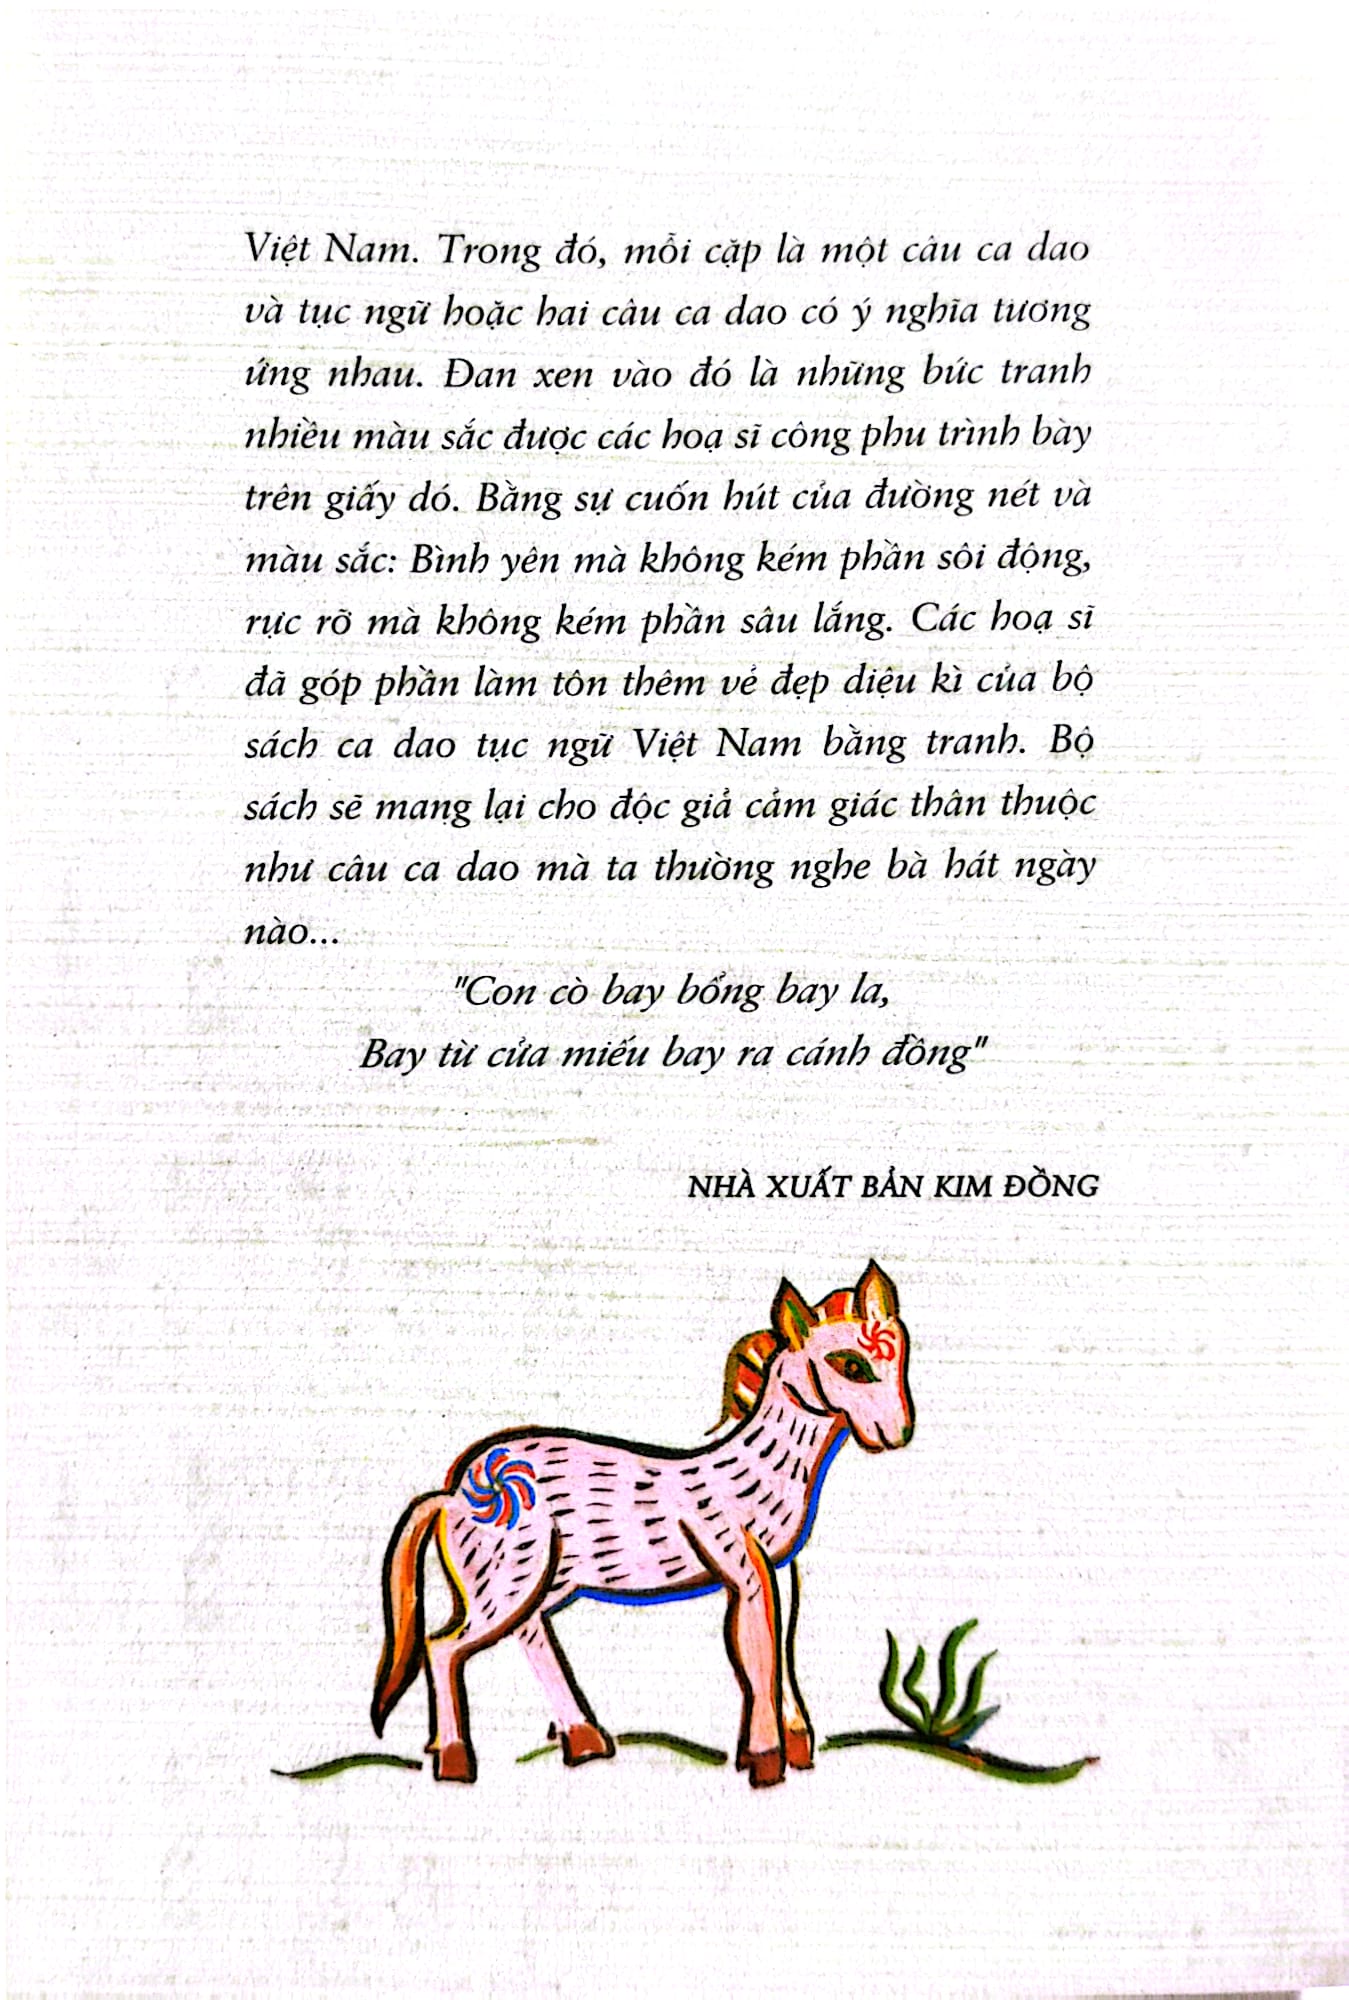 Việt Nam. Trong đó, mỗi cặp là một câu ca dao
và tục ngữ hoặc hai câu ca dao có ý nghĩa tương
ứng nhau. Đan xen vào đó là những bức tranh
nhiều màu sắc được các hoạ sĩ công phu trình bày
trên giấy dó. Bằng sự cuốn hút của đường nét và
màu sắc: Bình yên mà không kém phần sôi động,
rực rỡ mà không kém phần sâu lắng. Các hoạ sĩ
đã góp phần làm tôn thêm vẻ đẹp diệu kì của bộ
sách ca dao tục ngữ Việt Nam bằng tranh. Bộ
sách sẽ mang lại cho độc giả cảm giác thân thuộc
như câu ca dao mà ta thường nghe bà hát ngày
nào...
"Con cò bay bổng bay la,
Bay từ cửa miếu bay ra cánh đồng"
NHÀ XUẤT BẢN KIM ĐỒNG